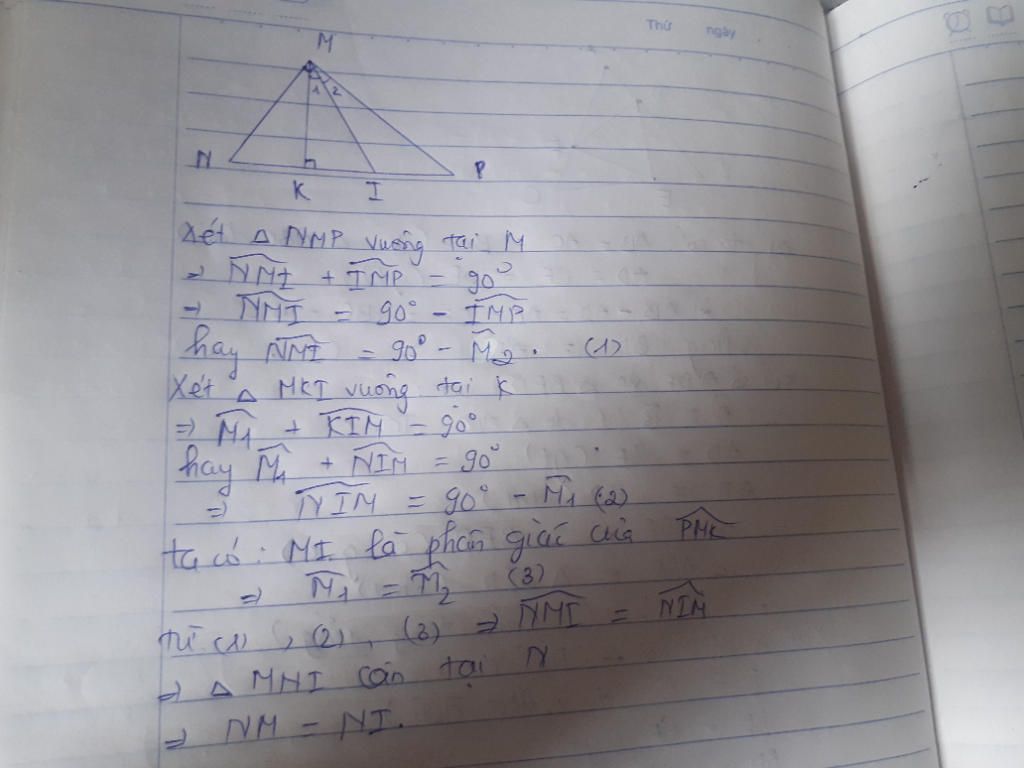 Thứ ngày
M
1 2
N
K I P
Xét △ NMP vuông tại M
⇒ \widehat{NMI} + \widehat{IMP} = 90°
⇒ \widehat{NMI} = 90° - \widehat{IMP}
hay \widehat{NMI} = 90° - \widehat{M}₂. (1)
Xét △ MKI vuông tại K
⇒ \widehat{M₁} + \widehat{KIM} = 90°
hay \widehat{M₁} + \widehat{NIM} = 90°
⇒ \widehat{NIM} = 90° - \widehat{M₁} (2)
ta có: MI là phân giác của \widehat{PMK}
⇒ \widehat{M₁} = \widehat{M₂} (3)
từ (1), (2), (3) ⇒ \widehat{NMI} = \widehat{NIM}
⇒ △ MNI cân tại N
⇒ NM = NI.